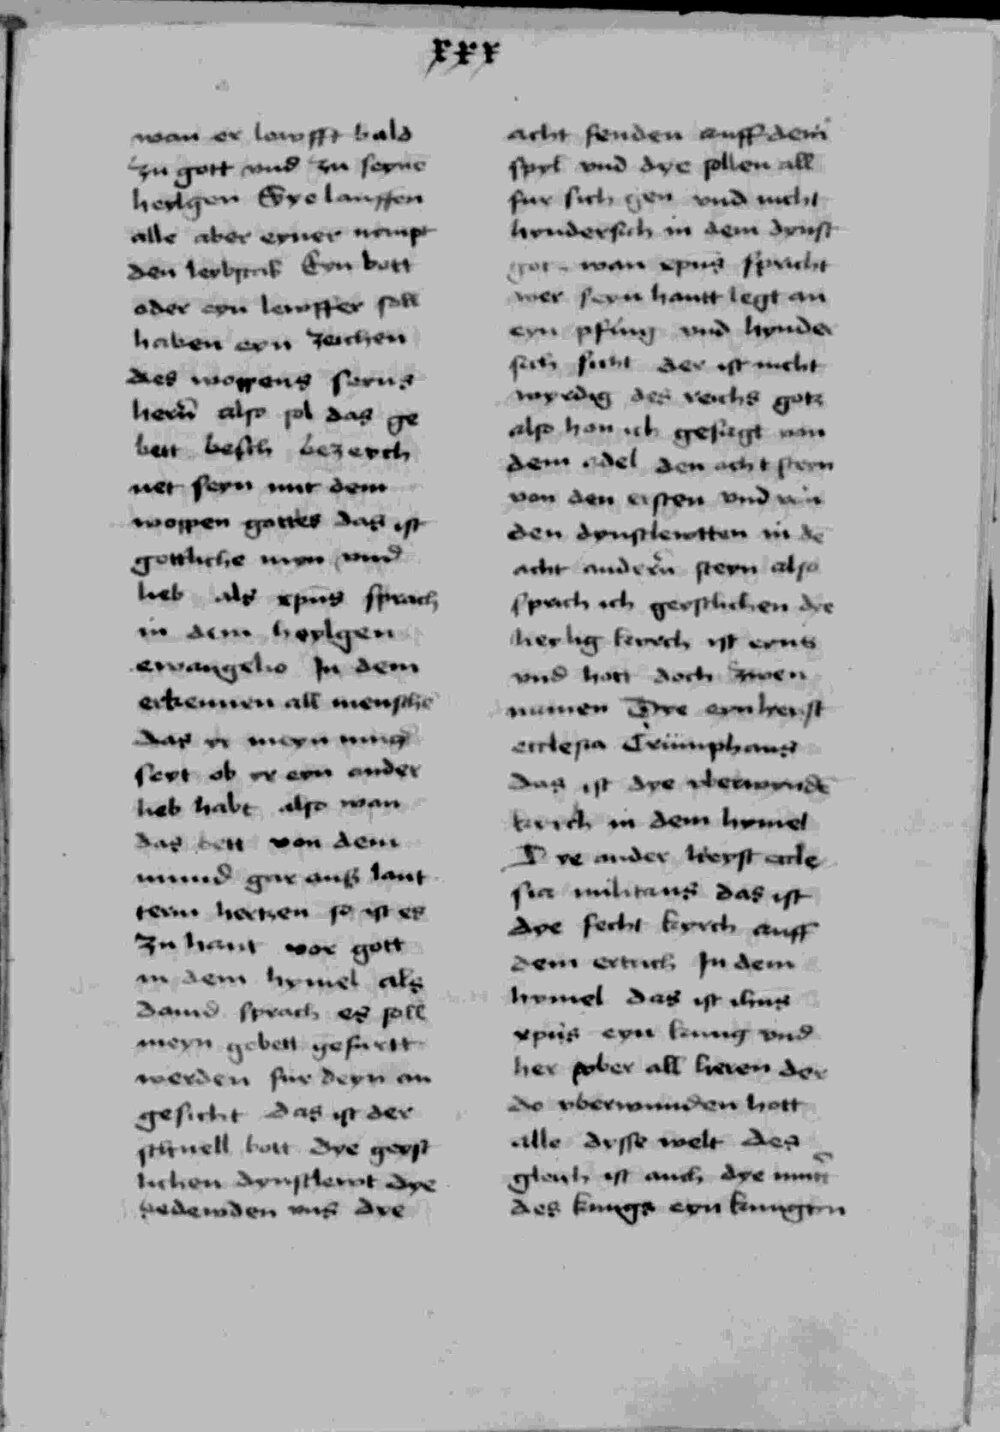 xxx
wan er lowfft bald
zu gott vnd zu seynē
heylgen Sye lauffen
alle aber eyner nempt
den leybstak Eyn bott
oder eyn lewffer soll
haben eyn zeichen
des woppens seyns
herñ also sol das ge
bett besch bezeych
net seyn mit dem
woppen gottes das ist
gottliche myn vnd
lieb als xpūs sprach
in dem heylgen
ewangelio In dem
erkennen all menschē
das yr meyn
seyt ob yr eyn ander
lieb habt also wan
das bett von dem
mund gar auß laut
term hertzen so ist es
zu hant vor gott
in dem hymel als
dauid sprach es soll
meyn gebett gefurtt
werden fur deyn an
gesicht das ist der
schnell bott dye geyst
lichen dynstlewt dye
bedewden vns dye
acht fenden auff dem
spyl vnd dye sollen all
fur sich gen vnd nicht
hyndersich in dem dynst
got wan xpūs spricht
wer seyn hantt legt an
eyn pflug vnd hynder
sich sicht der ist nicht
wyrdig des reichs gotz
also hon ich gesagt von
dem adel den acht steyn
von den ersten vnd von
den dynstlewtten in dē
acht anderñ steyn also
sprich ich geystlichen dye
heylig kyrch ist eyns
vnd hott doch zwen
namen Dye eyn heyst
ecclesia Triumphans
das ist dye vberwyndē
kyrch in dem hymel
Dye ander heyst eccle
sia militans das ist
dye fecht kyrch auff
dem ertrich In dem
hymel das ist ihūs
xpūs eyn kunig vnd
her vber all heren der
do vberwunden hott
alle dysse welt des
gleich ist auch dye mutt̄
des kungs eyn kungin